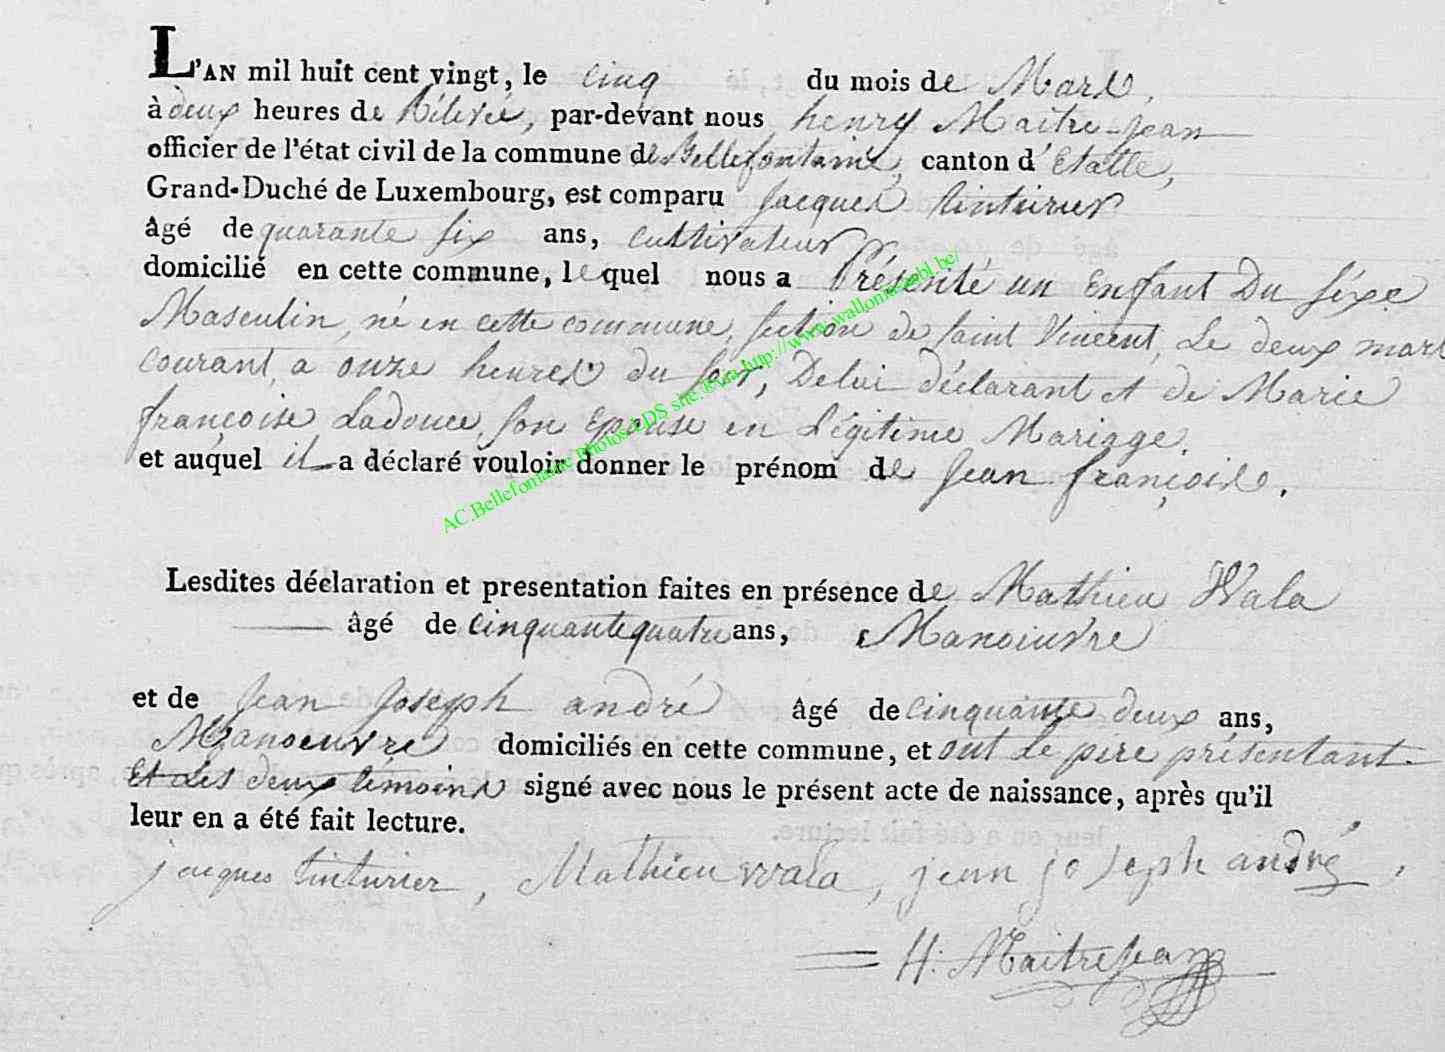 L'AN mil huit cent vingt, le cinq du mois de Mars,
à deux heures de Rélevée, par-devant nous henry Maitre-jean
officier de l'état civil de la commune de Bellefontaine, canton d'Etalle,
Grand-Duché de Luxembourg, est comparu Jacques tinturier
âgé de quarante six ans, cultivateur
domicilié en cette commune, lequel nous a Présenté un Enfant Du sèxe
Masculin, né en cette commune, section de saint Vincent, Le deux mars
courant, a onze heures du soir, De lui déclarant et de Marie
françoise Ladouce son Epouse en Légitime Mariage.
et auquel il a déclaré vouloir donner le prénom de Jean françois.
AC.Bellefontaine Photos LDS site:© http://www.wallonia.mbl.be/
Lesdites déclaration et presentation faites en présence de Mathieu Wala
âgé de cinquante quatre ans, Manoeuvre
et de Jean Joseph andré âgé de cinquante deux ans,
Manoeuvre domiciliés en cette commune, et ont Le père présentant
Et Les deux témoins signé avec nous le présent acte de naissance, après qu'il
leur en a été fait lecture.
jacques tinturier, Mathieu wala, jean joseph andré,
H: Maitrejean